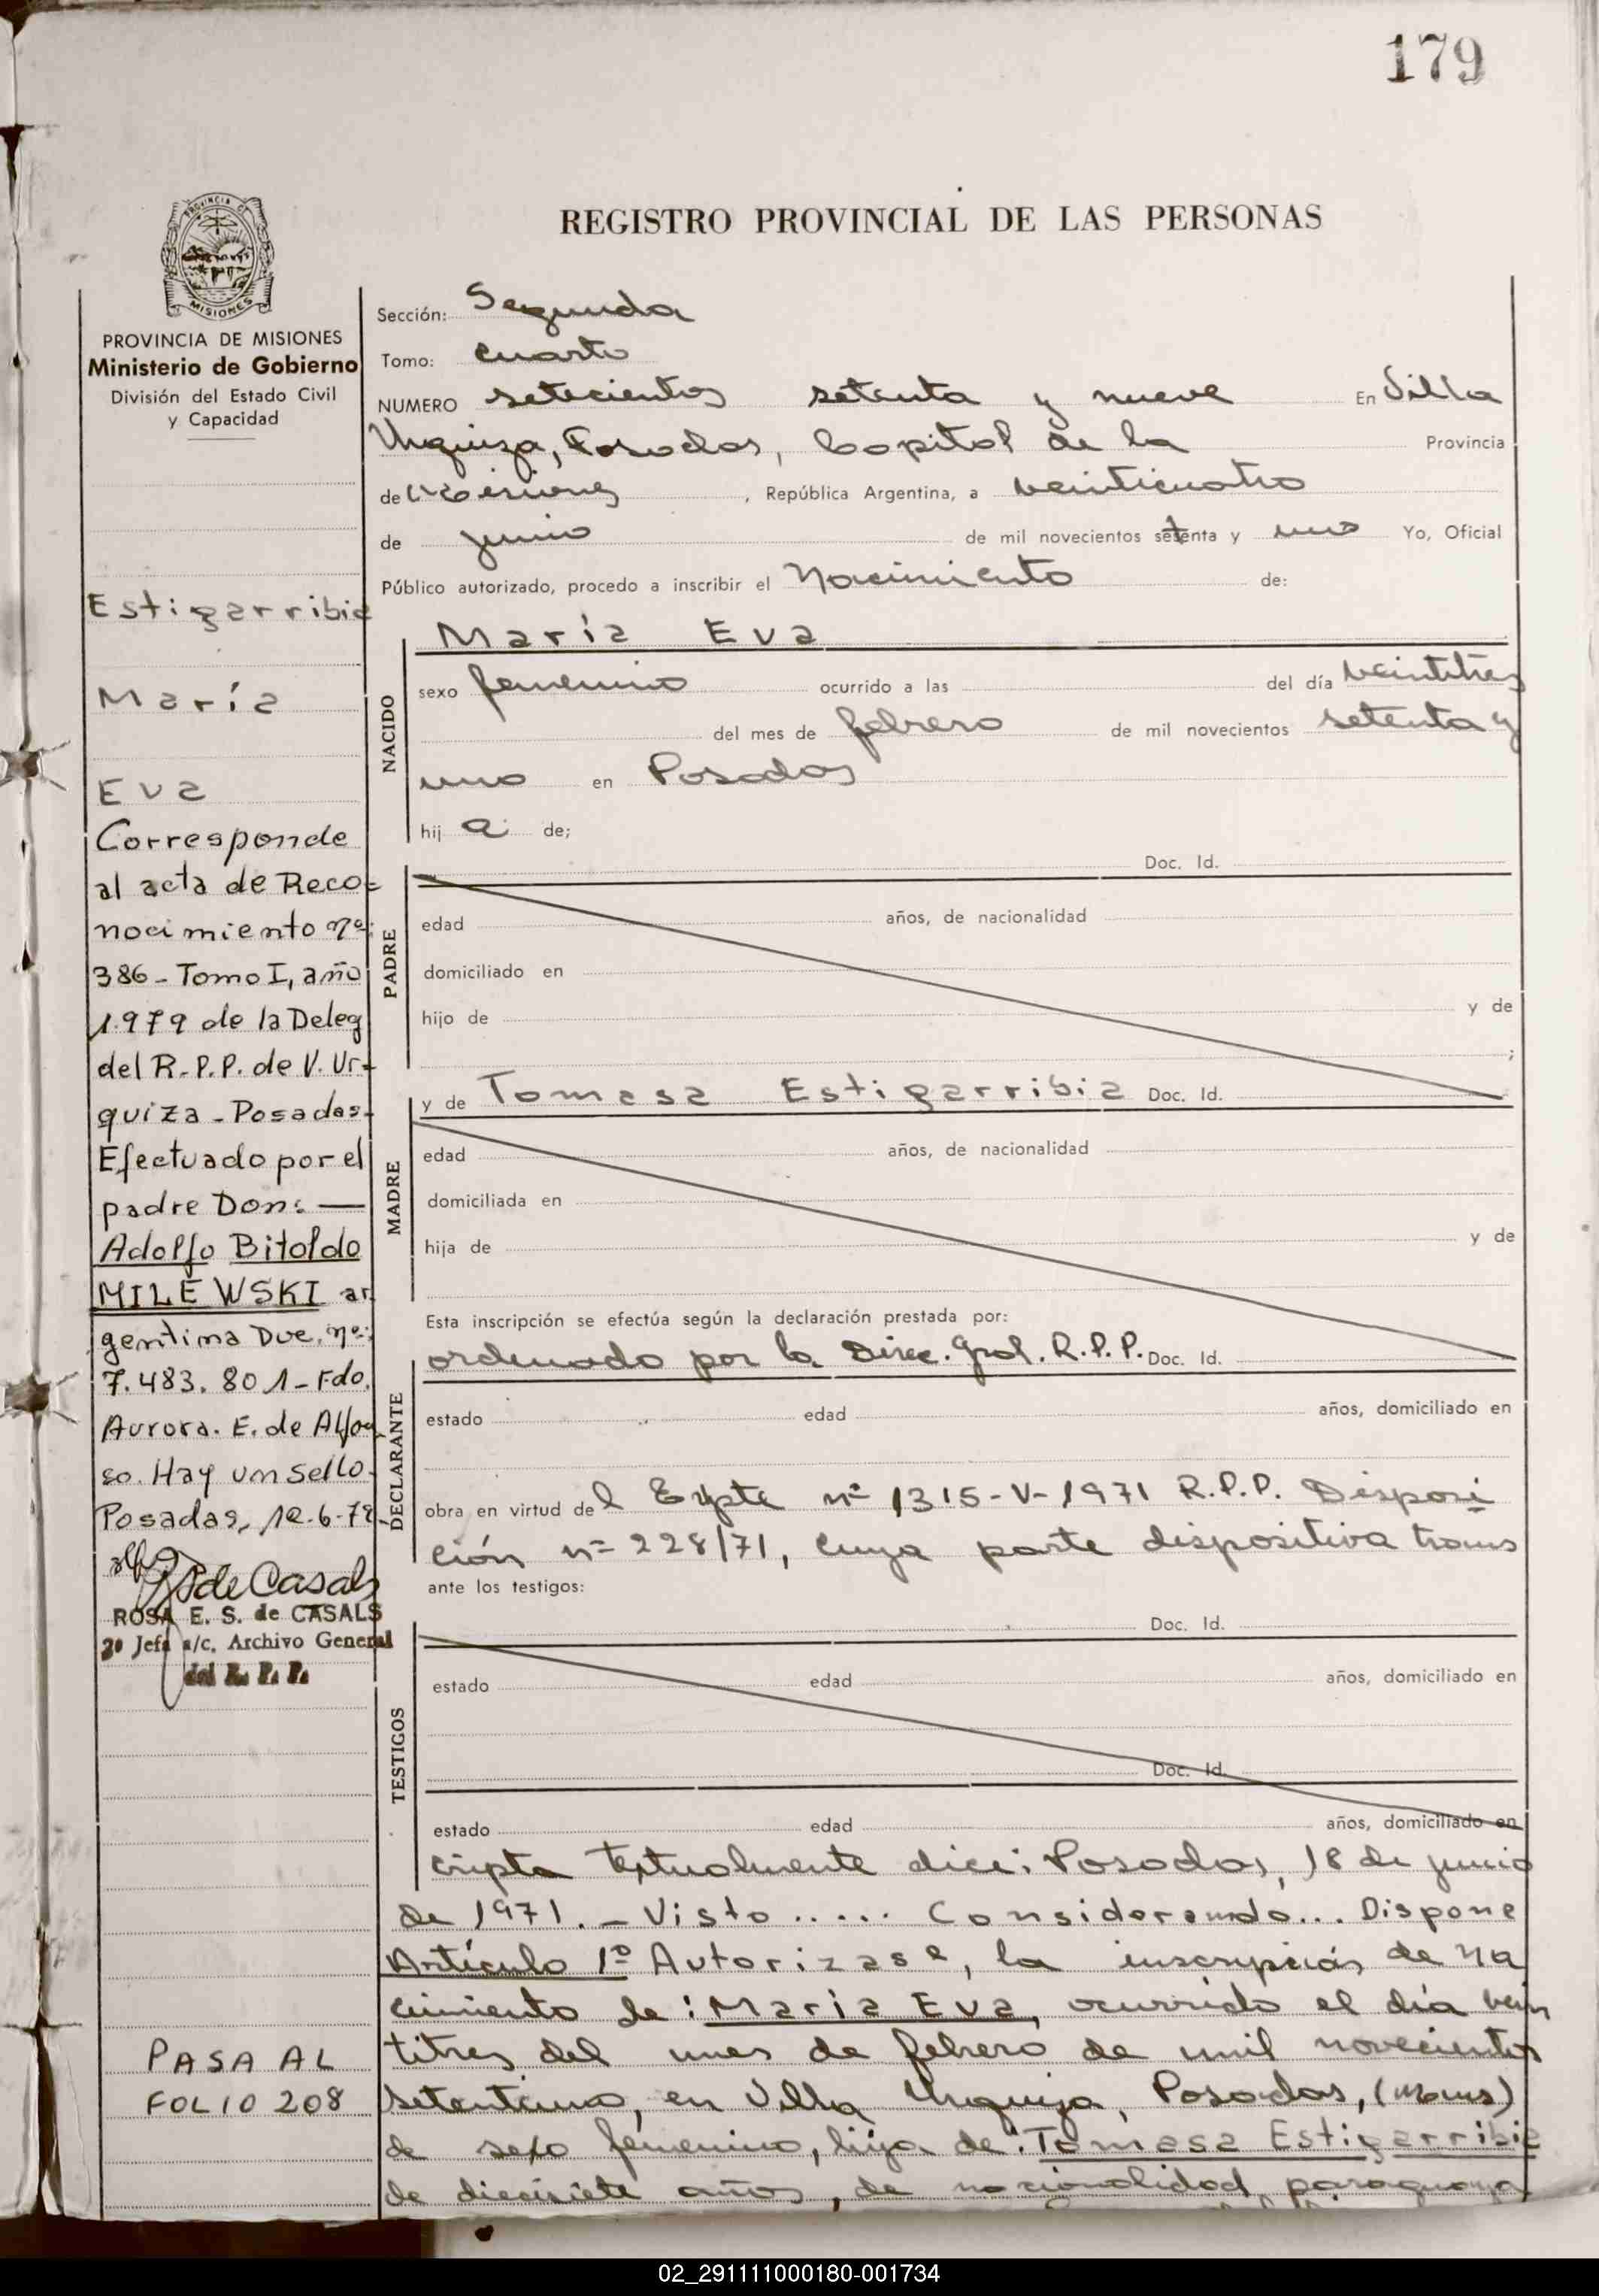 179
REGISTRO PROVINCIAL DE LAS PERSONAS
PROVINCIA DE
MISIONES
PROVINCIA DE MISIONES
Ministerio de Gobierno
División del Estado Civil
y Capacidad
Estigarribia
María
Eva
Corresponde
al acta de Reco-
nocimiento nº:
386 - Tomo I, año
1.979 de la Deleg
del R.P.P. de V. Ur-
quiza - Posadas-
Efectuado por el
padre Don: —
Adolfo Bitoldo
MILEWSKI ar
gentina Due. nº:
7.483.801 - Fdo.
Aurora. E. de Alfon
so. Hay un sello.
Posadas, 12-6-79-
de Casals
ROSA E. S. de CASALS
2º Jefa a/c. Archivo General
del R. P. P.
PASA AL
FOLIO 208
Sección: Segunda
Tomo: cuarto
NUMERO setecientos setenta y nueve En Villa
Urquiza, Posadas, Capital de la Provincia
de Misiones, República Argentina, a veinticuatro
de junio de mil novecientos setenta y uno Yo, Oficial
Público autorizado, procedo a inscribir el Nacimiento de:
María Eva
NACIDO
sexo femenino ocurrido a las del día veintitrés
del mes de febrero de mil novecientos setenta y
uno en Posadas
hij a de;
Doc. Id.
PADRE
edad años, de nacionalidad
domiciliado en
hijo de y de
;
y de Tomasa Estigarribia Doc. Id.
MADRE
edad años, de nacionalidad
domiciliada en
hija de y de
Esta inscripción se efectúa según la declaración prestada por:
ordenado por la Direc. Gral. R.P.P. Doc. Id.
DECLARANTE
estado edad años, domiciliado en
obra en virtud del Expte nº 1315-V-1971 R.P.P. Disposi
ción nº 228/71, cuya parte dispositiva trans
ante los testigos:
Doc. Id.
TESTIGOS
estado edad años, domiciliado en
Doc. Id.
estado edad años, domiciliado en
cripta textualmente dice: Posadas, 18 de junio
de 1971. - Visto ..... Considerando... Dispone
Artículo 1º Autorizase, la inscripción de na
cimiento de: María Eva, ocurrido el día vein
titres del mes de febrero de mil novecientos
setentaiuno, en Villa Urquiza, Posadas, (Mnes)
de sexo femenino, hija de: Tomasa Estigarribia
de diecisiete años, de nacionalidad paraguaya
02_291111000180-001734